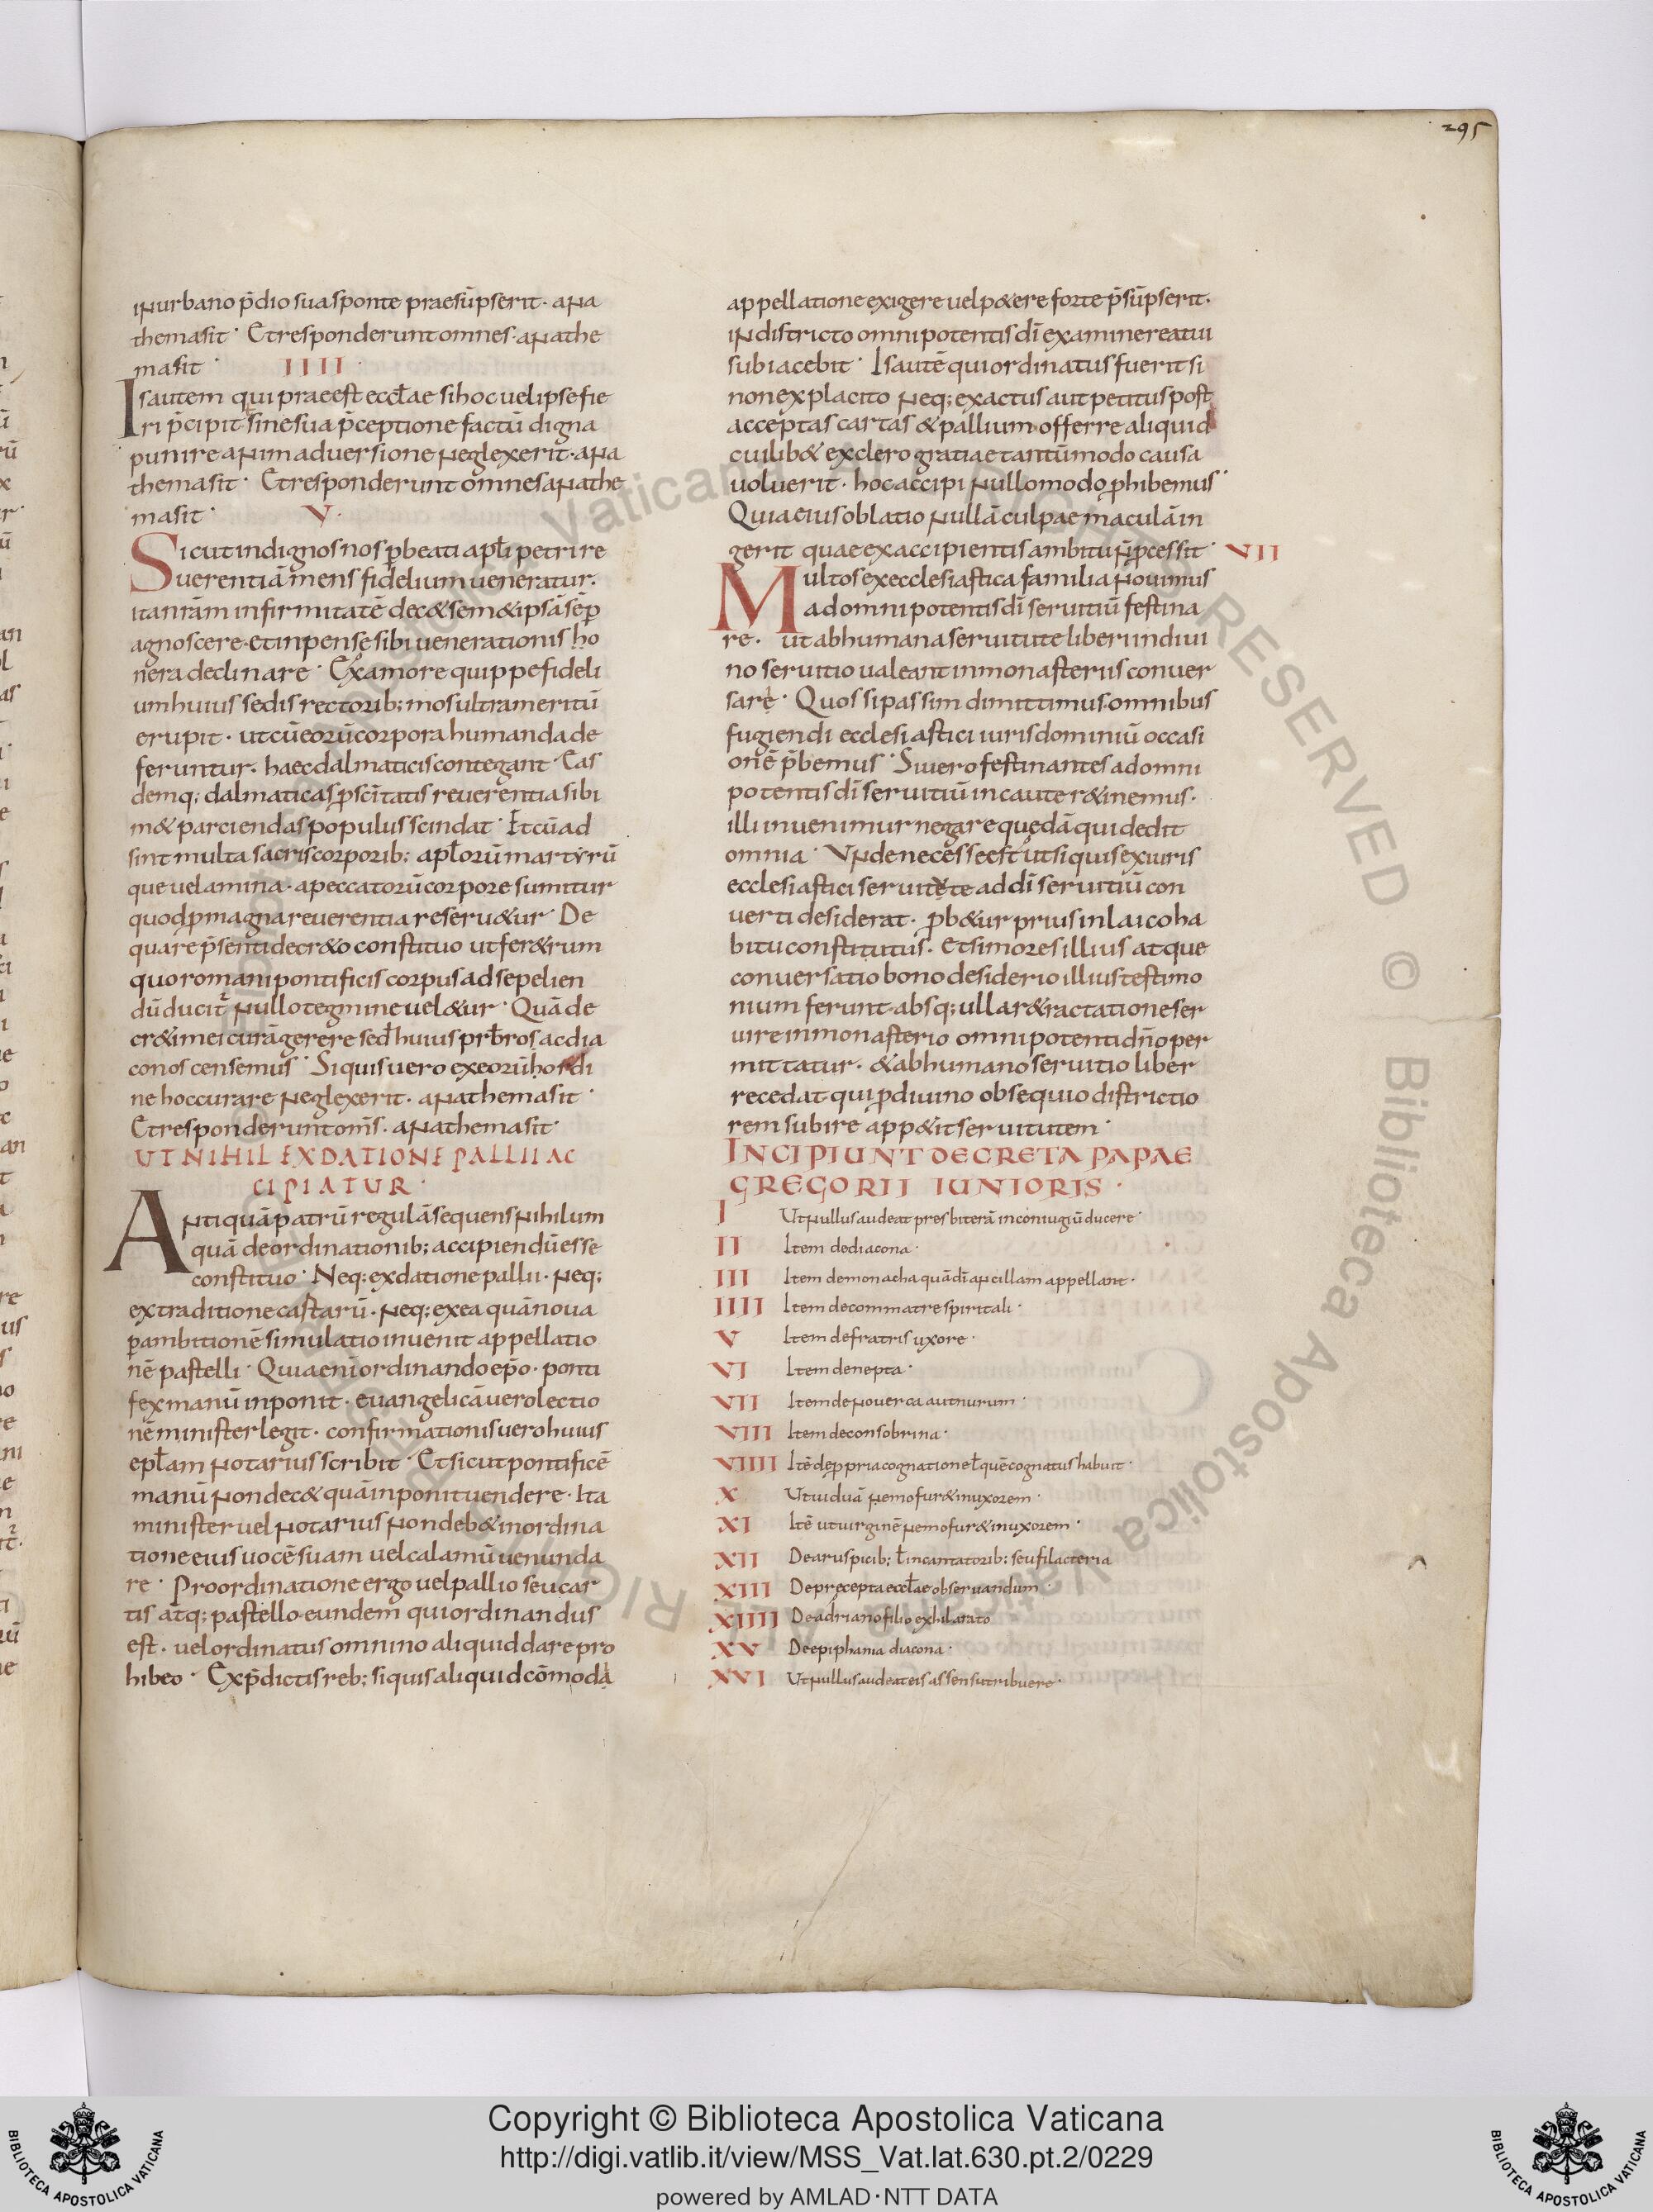 295
inurbano p̄dio suasponte praesūpserit · ana
themasit · Etresponderuntomnes · anathe
masit · IIII ·
Isautem qui praeest eccłae sihoc uelipsefie
ri p̄cipit sinesua p̄ceptione factū digna
punire animaduersione neglexerit · ana
themasit · Etresponderuntomnesanathe
masit · V ·
Sicutindignosnos ꝑbeati apłi petri re
uerentiā mens fidelium ueneratur ·
itanrām infirmitatē dec&sem&ipsā sēꝑ
agnoscere · etinpensesibiuenerationis ho
nera declinare · Examore quippefideli
umhuius sedis rectorib; mosultrameritū
erupit · utcūeorūcorpora humanda de
feruntur · haecdalmaticiscontegant · Eas
demq; dalmaticas ꝓscītatis reuerentia sibi
m& parciendas populus scindat · Et cūad
sint multa sacriscorporib; apłorū martyrū
que uelamina · apeccatorū corpore sumitur
quodꝓmagnareuerentia reseru&ur · De
quare p̄sentidecr&o constituo utfer&rum
quoromanipontificis corpusadsepelien
dū ducit̄ nullotegmineuel&ur · Quā de
cr&imeicurāgerere sed̄ huius prb̄ros acdia
conos censemus · Siquisuero exeorū hordi
ne hoccurare neglexerit · anathemasit ·
Etresponderuntom̄s · anathemasit ·
UT NIHIL EX DATIONE PALLII AC
CIPIATUR ·
Antiquā patrū regulā sequens nihilum
quā deordinationib; accipiendū esse
constituo · Neq; exdatione pallii · neq;
extraditione castarū · neq; exea quānoua
ꝑambitionē simulatio inuenit appellatio
nē pastelli · Quiaenī ordinando ep̄o · ponti
fexmanū inponit · euangelicā uerolectio
nē ministerlegit · confirmationisuerohuius
epłam notarius scribit · Etsicutpontificē
manū nondec& quāinponituendere · Ita
ministeruel notarius nondeb&inordina
tioneeius uocē suam uelcalamū uenunda
re · Proordinatione ergo uelpallio seucar
tis atq; pastello · eundem quiordinandus
est · uelordinatus omnino aliquid dare pro
hibeo · Exp̄dictis reb; siquisaliquidcōmoda
appellatione exigere uelp&ere forte p̄sūpserit ·
indistricto omnipotentis dī examine reatui
subiacebit · Isautē quiordinatus fuerit si
nonexplacito neq; exactus aut petitus post
acceptas cartas & pallium offerre aliquid
cuilib& exclero gratiaetantūmodo causa
uoluerit · hocaccipi nullomodo ꝓhibemus ·
Quiaeiusoblatio nullā culpae maculā in
gerit quaeexaccipientisambitu n̄ ꝓcessit · VII
Multosexecclesiastica familia nouimus
adomnipotentisdī seruitiū festina
re · utabhumanaseruitute liberi indiui
no seruitio ualeant inmonasteriis conuer
sare · Quossipassim dimittimus omnibus
fugiendi ecclesiastici iurisdominiū occasi
onē p̄bemus · Siuerofestinantes adomni
potentis dī seruitiū incaute r&inemus ·
illi inuenimur negare quędā quidedit
omnia · Undenecesseest utsiquisexiuris
ecclesiastici seruitute addī seruitiū con
uerti desiderat · ꝓb&ur prius inlaicoha
bituconstitutus · etsimores illius atque
conuersatio bono desiderio illiustestimo
nium ferunt · absq; ulla r&ractationeser
uire inmonasterio omnipotenti dn̄o per
mittatur · & abhumanoseruitio liber
recedat qui ꝓdiuino obsequio districtio
rem subire app&it seruitutem ·
INCIPIUNT DECRETA PAPAE
GREGORII IUNIORIS ·
I Utnullusaudeat presbiterā inconiugiū ducere ·
II Item dediacona ·
III Item demonacha quādī ancillam appellant ·
IIII Item decommatre spiritali ·
V Item defratris uxore ·
VI Item denepta ·
VII Item denouerca autnurum ·
VIII Item deconsobrina ·
VIIII Itē deꝓpriacognatione ł quēcognatushabuit ·
X Utuiduā nemofur&inuxorem ·
XI Itē utuirginē nemofur&inuxorem ·
XII Dearuspicib; ł incantatorib; seufilacteria
XIII Depręcepta eccłae obseruandum ·
XIIII Deadrianofilio exhilarato
XV Deepiphania diacona ·
XVI Utnullusaudeateis assensutribuere ·
© Biblioteca Apostolica Vaticana ALL RIGHTS RESERVED
Copyright © Biblioteca Apostolica Vaticana
http://digi.vatlib.it/view/MSS_Vat.lat.630.pt.2/0229
powered by AMLAD·NTT DATA
BIBLIOTECA APOSTOLICA VATICANA
BIBLIOTECA APOSTOLICA VATICANA